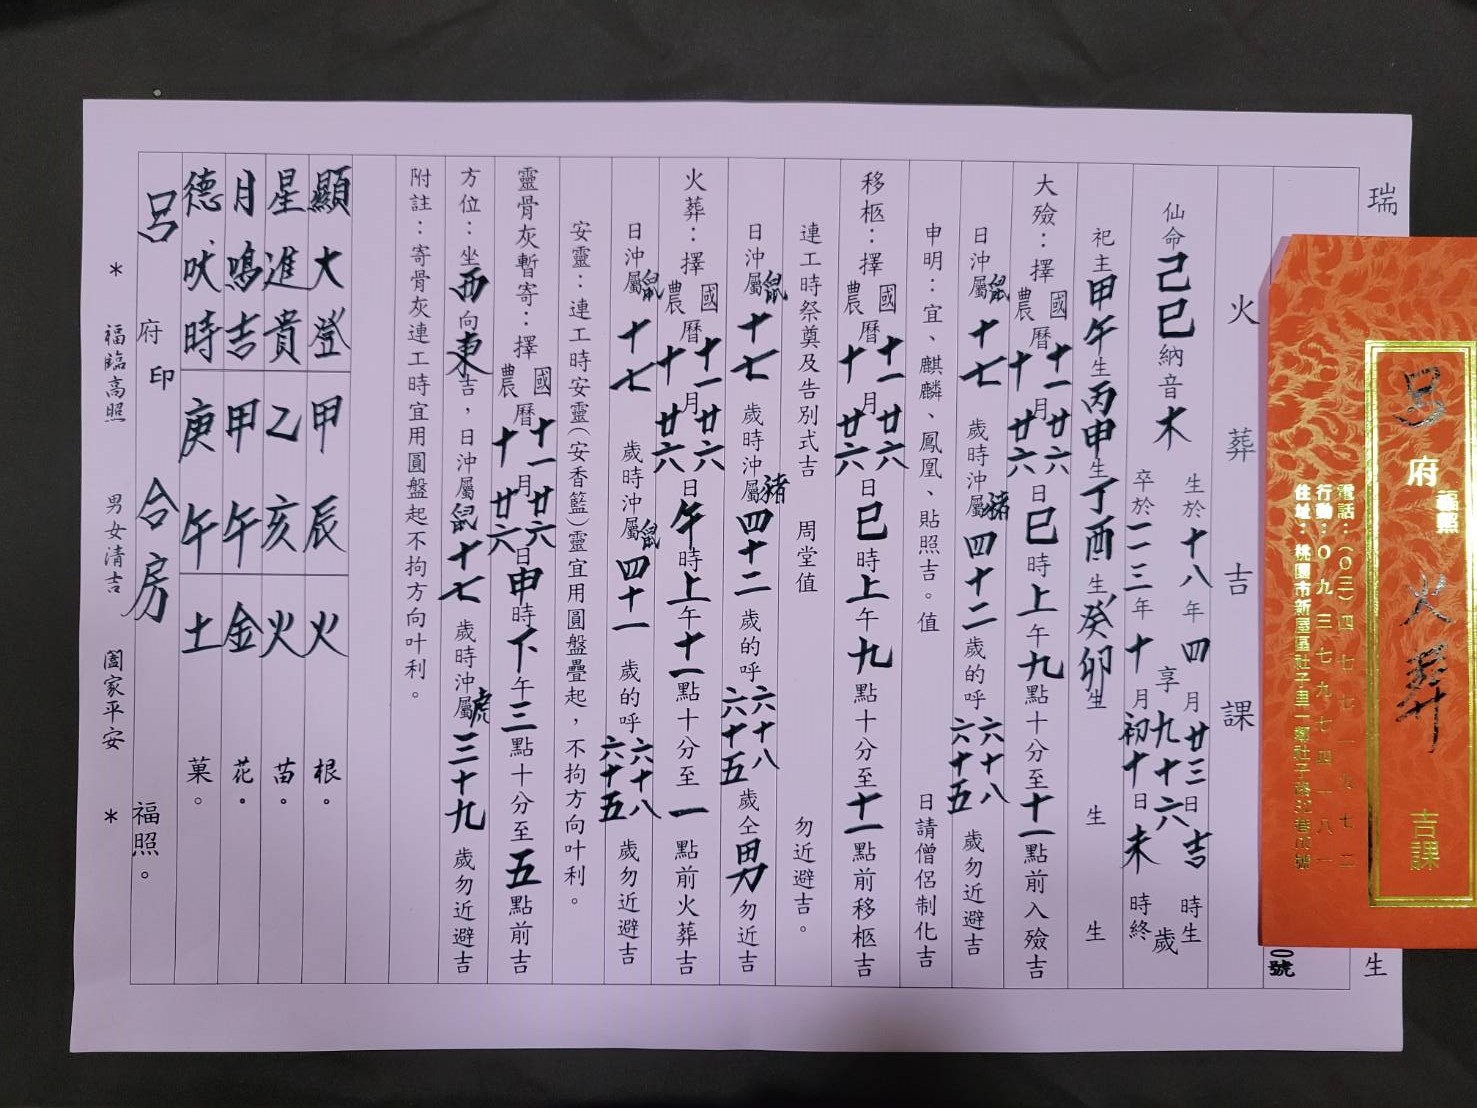 瑞
生
火葬吉課
仙命己巳納音木
生於十八年四月廿三日吉時生
享九十六歲
卒於一一三年十月初十日未時終
祀主甲午生丙申生丁酉生癸卯生 生 生
大殮：擇國農曆十一月廿六十月廿六日巳時上午九點十分至十一點前入殮吉
日沖屬鼠十七歲時沖屬豬四十二歲的呼六十八六十五歲勿近避吉
申明：宜、麒麟、鳳凰、貼照吉。值 日請僧侶制化吉
移柩：擇國農曆十一廿六十月廿六日巳時上午九點十分至十一點前移柩吉
連工時祭奠及告別式吉 周堂值 勿近避吉。
日沖屬鼠十七歲時沖屬豬四十二歲的呼六十八六十五歲仝男勿近吉
火葬：擇國農曆十一月廿六十月廿六日午時上午十一點十分至一點前火葬吉
日沖屬鼠十七歲時沖屬鼠四十一歲的呼六十八六十五歲勿近避吉
安靈：連工時安靈(安香籃)靈宜用圓盤疊起，不拘方向叶利。
靈骨灰暫寄：擇國農曆十一月廿六十月廿六日申時下午三點十分至五點前吉
方位：坐西向東吉，日沖屬鼠十七歲時沖屬虎三十九歲勿近避吉
附註：寄骨灰連工時宜用圓盤起不拘方向叶利。
顯大登甲辰火根。
星進貴乙亥火苗。
月鳴吉甲午金花。
德吠時庚午土菓。
呂府印合房福照。
＊福臨高照 男女清吉 闔家平安＊
呂府火葬吉課
福照
電話：(０三)四七七一七七二
行動：０九三七九七四一八一